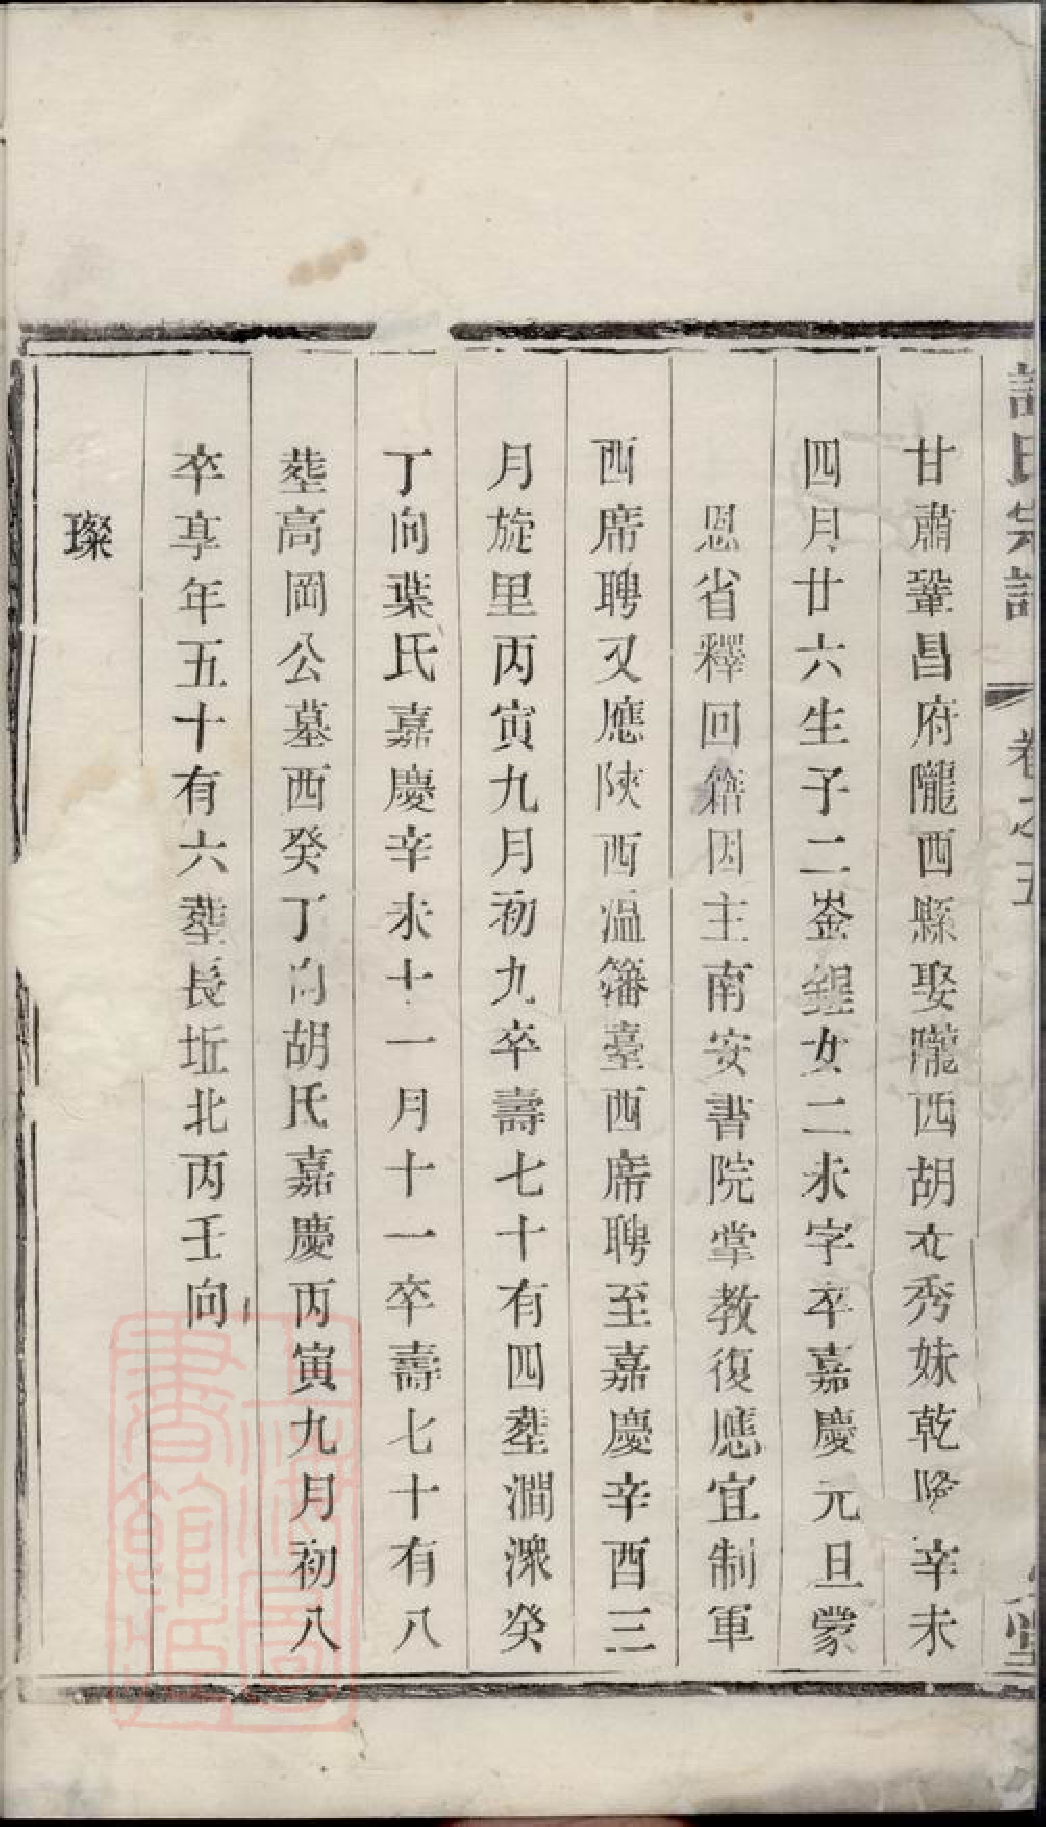 氏宗譜 卷之五 堂
甘肅鞏昌府隴西縣娶隴西胡文秀妹乾隆辛未
四月廿六生子二崟鍟女二未字卒嘉慶元旦蒙
恩省釋回籍因主南安書院掌教復應宜制軍
西席聘又應陝西温籓臺西席聘至嘉慶辛酉三
月旋里丙寅九月初九卒壽七十有四塟澗㵘癸
丁向葉氏嘉慶辛未十一月十一卒壽七十有八
塟高岡公墓西癸丁向胡氏嘉慶丙寅九月初八
卒享年五十有六塟長坵北丙壬向
璨
上海圖書館藏